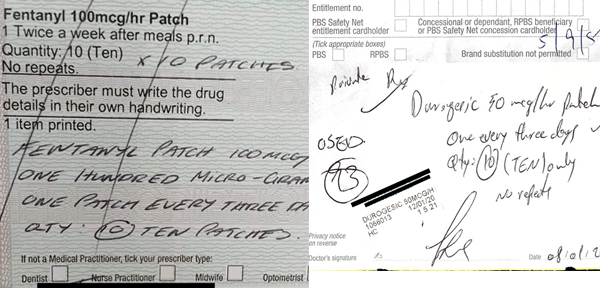 Fentanyl 100mcg/hr Patch
1 Twice a week after meals p.r.n.
Quantity: 10 (Ten)
x 10 PATCHES
No repeats.
The prescriber must write the drug
details in their own handwriting.
1 item printed.
FENTANYL PATCH 100MCG
ONE HUNDRED MICRO-GRAM
ONE PATCH EVERY THREE
QTY: 10 TEN PATCHES.
If not a Medical Practitioner, tick your prescriber type:
Dentist Nurse Practitioner Midwife Optometrist
Entitlement no.
PBS Safety Net
entitlement cardholder
Concessional or dependant, RPBS beneficiary
or PBS Safety Net concession cardholder
(Tick appropriate boxes)
PBS RPBS
Brand substitution not permitted
Private Rx
Durogesic 50 mcg/hr
One every three days
Qty: 10 (TEN) only
No repeats
DUROGESIC 50MCG/H
1066013 12/01/20
HC
Privacy notice
on reverse
Doctor's signature
Date